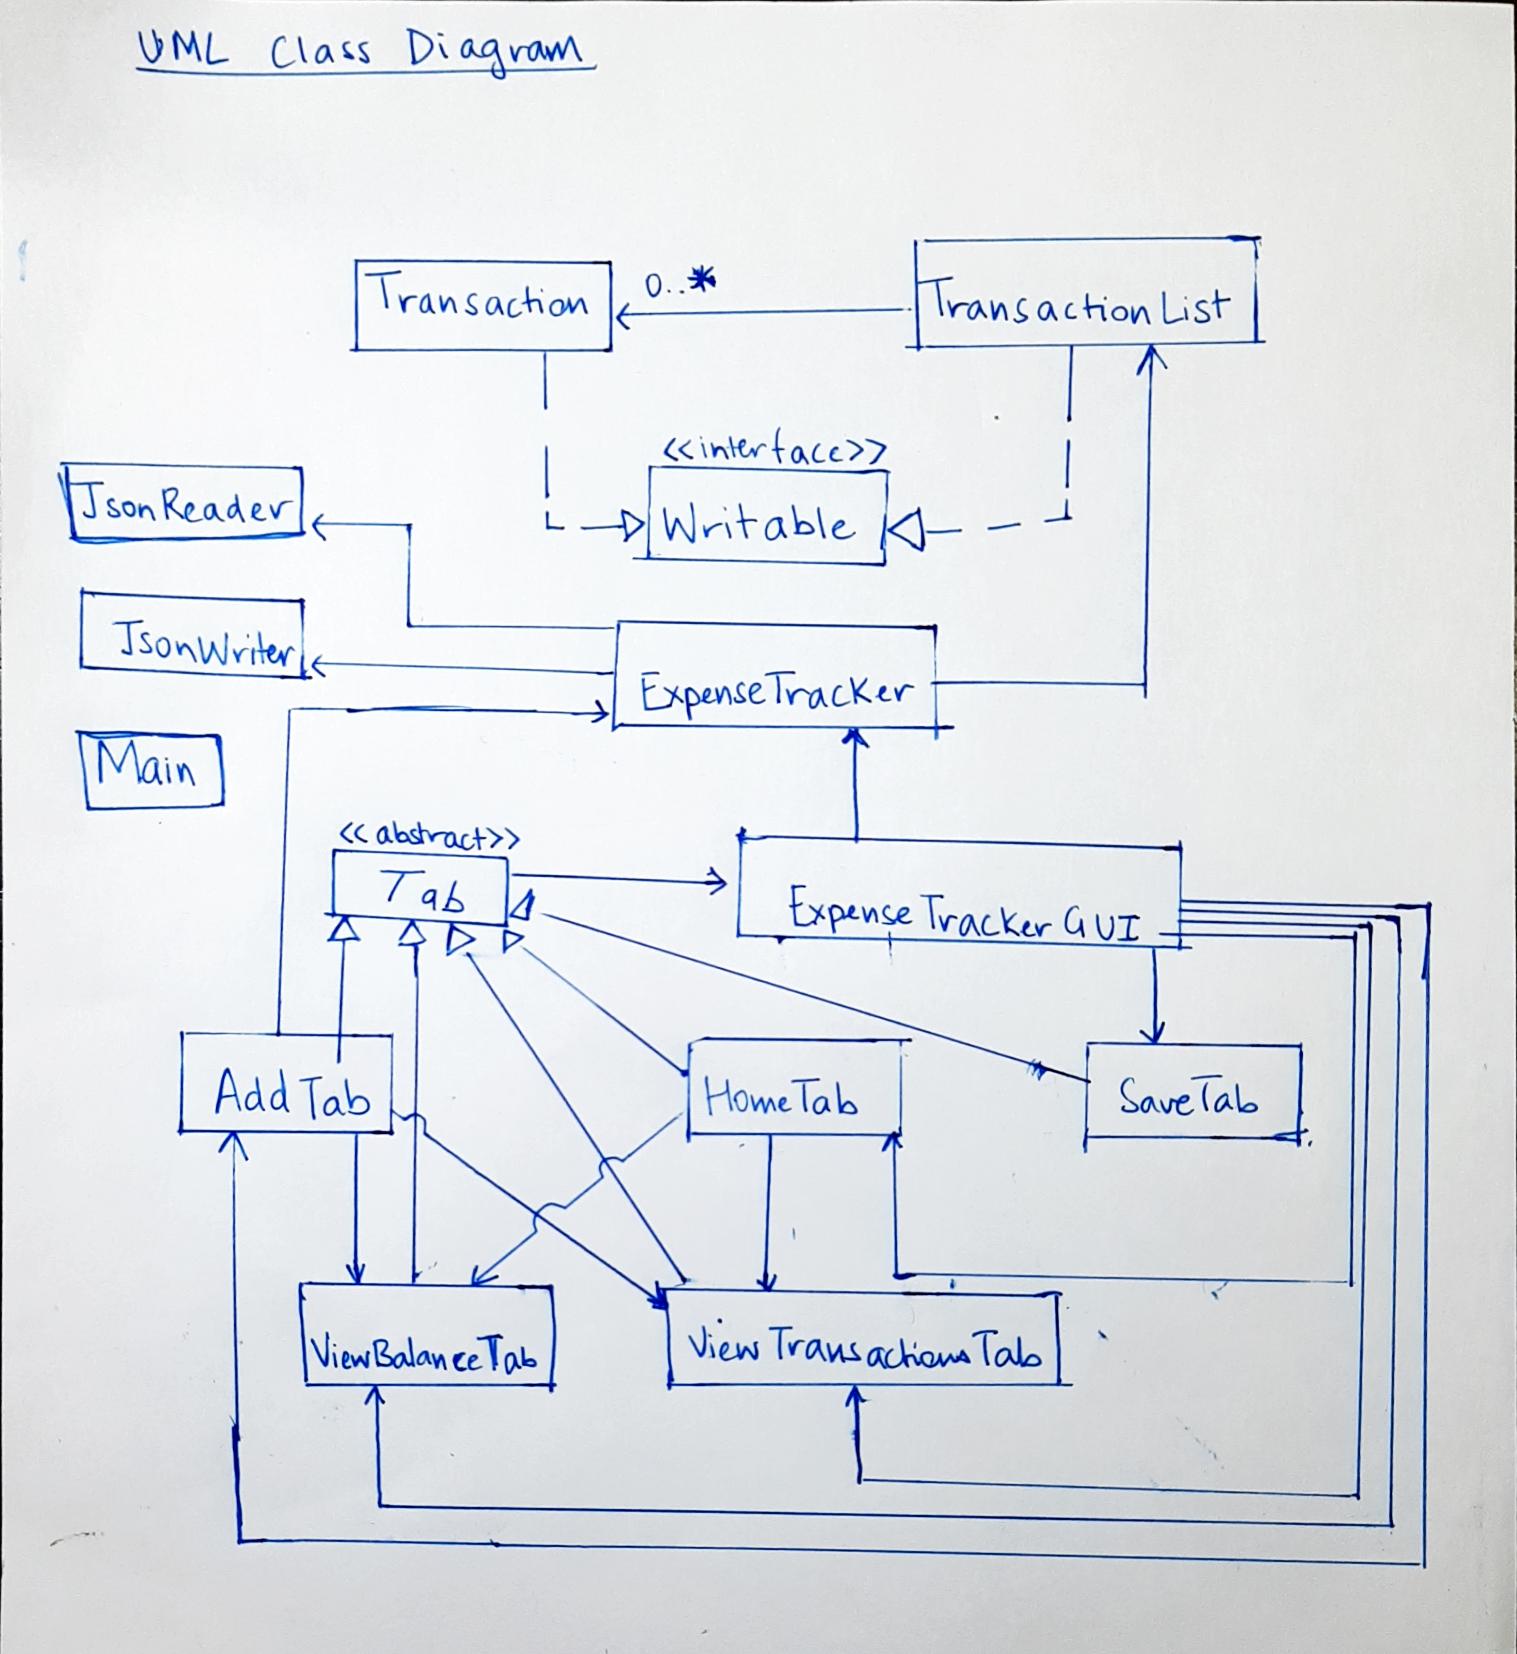 UML Class Diagram
Transaction
0..*
TransactionList
<<interface>>
Writable
JsonReader
JsonWriter
ExpenseTracker
Main
<<abstract>>
Tab
ExpenseTrackerGUI
AddTab
HomeTab
SaveTab
ViewBalanceTab
ViewTransactionsTab